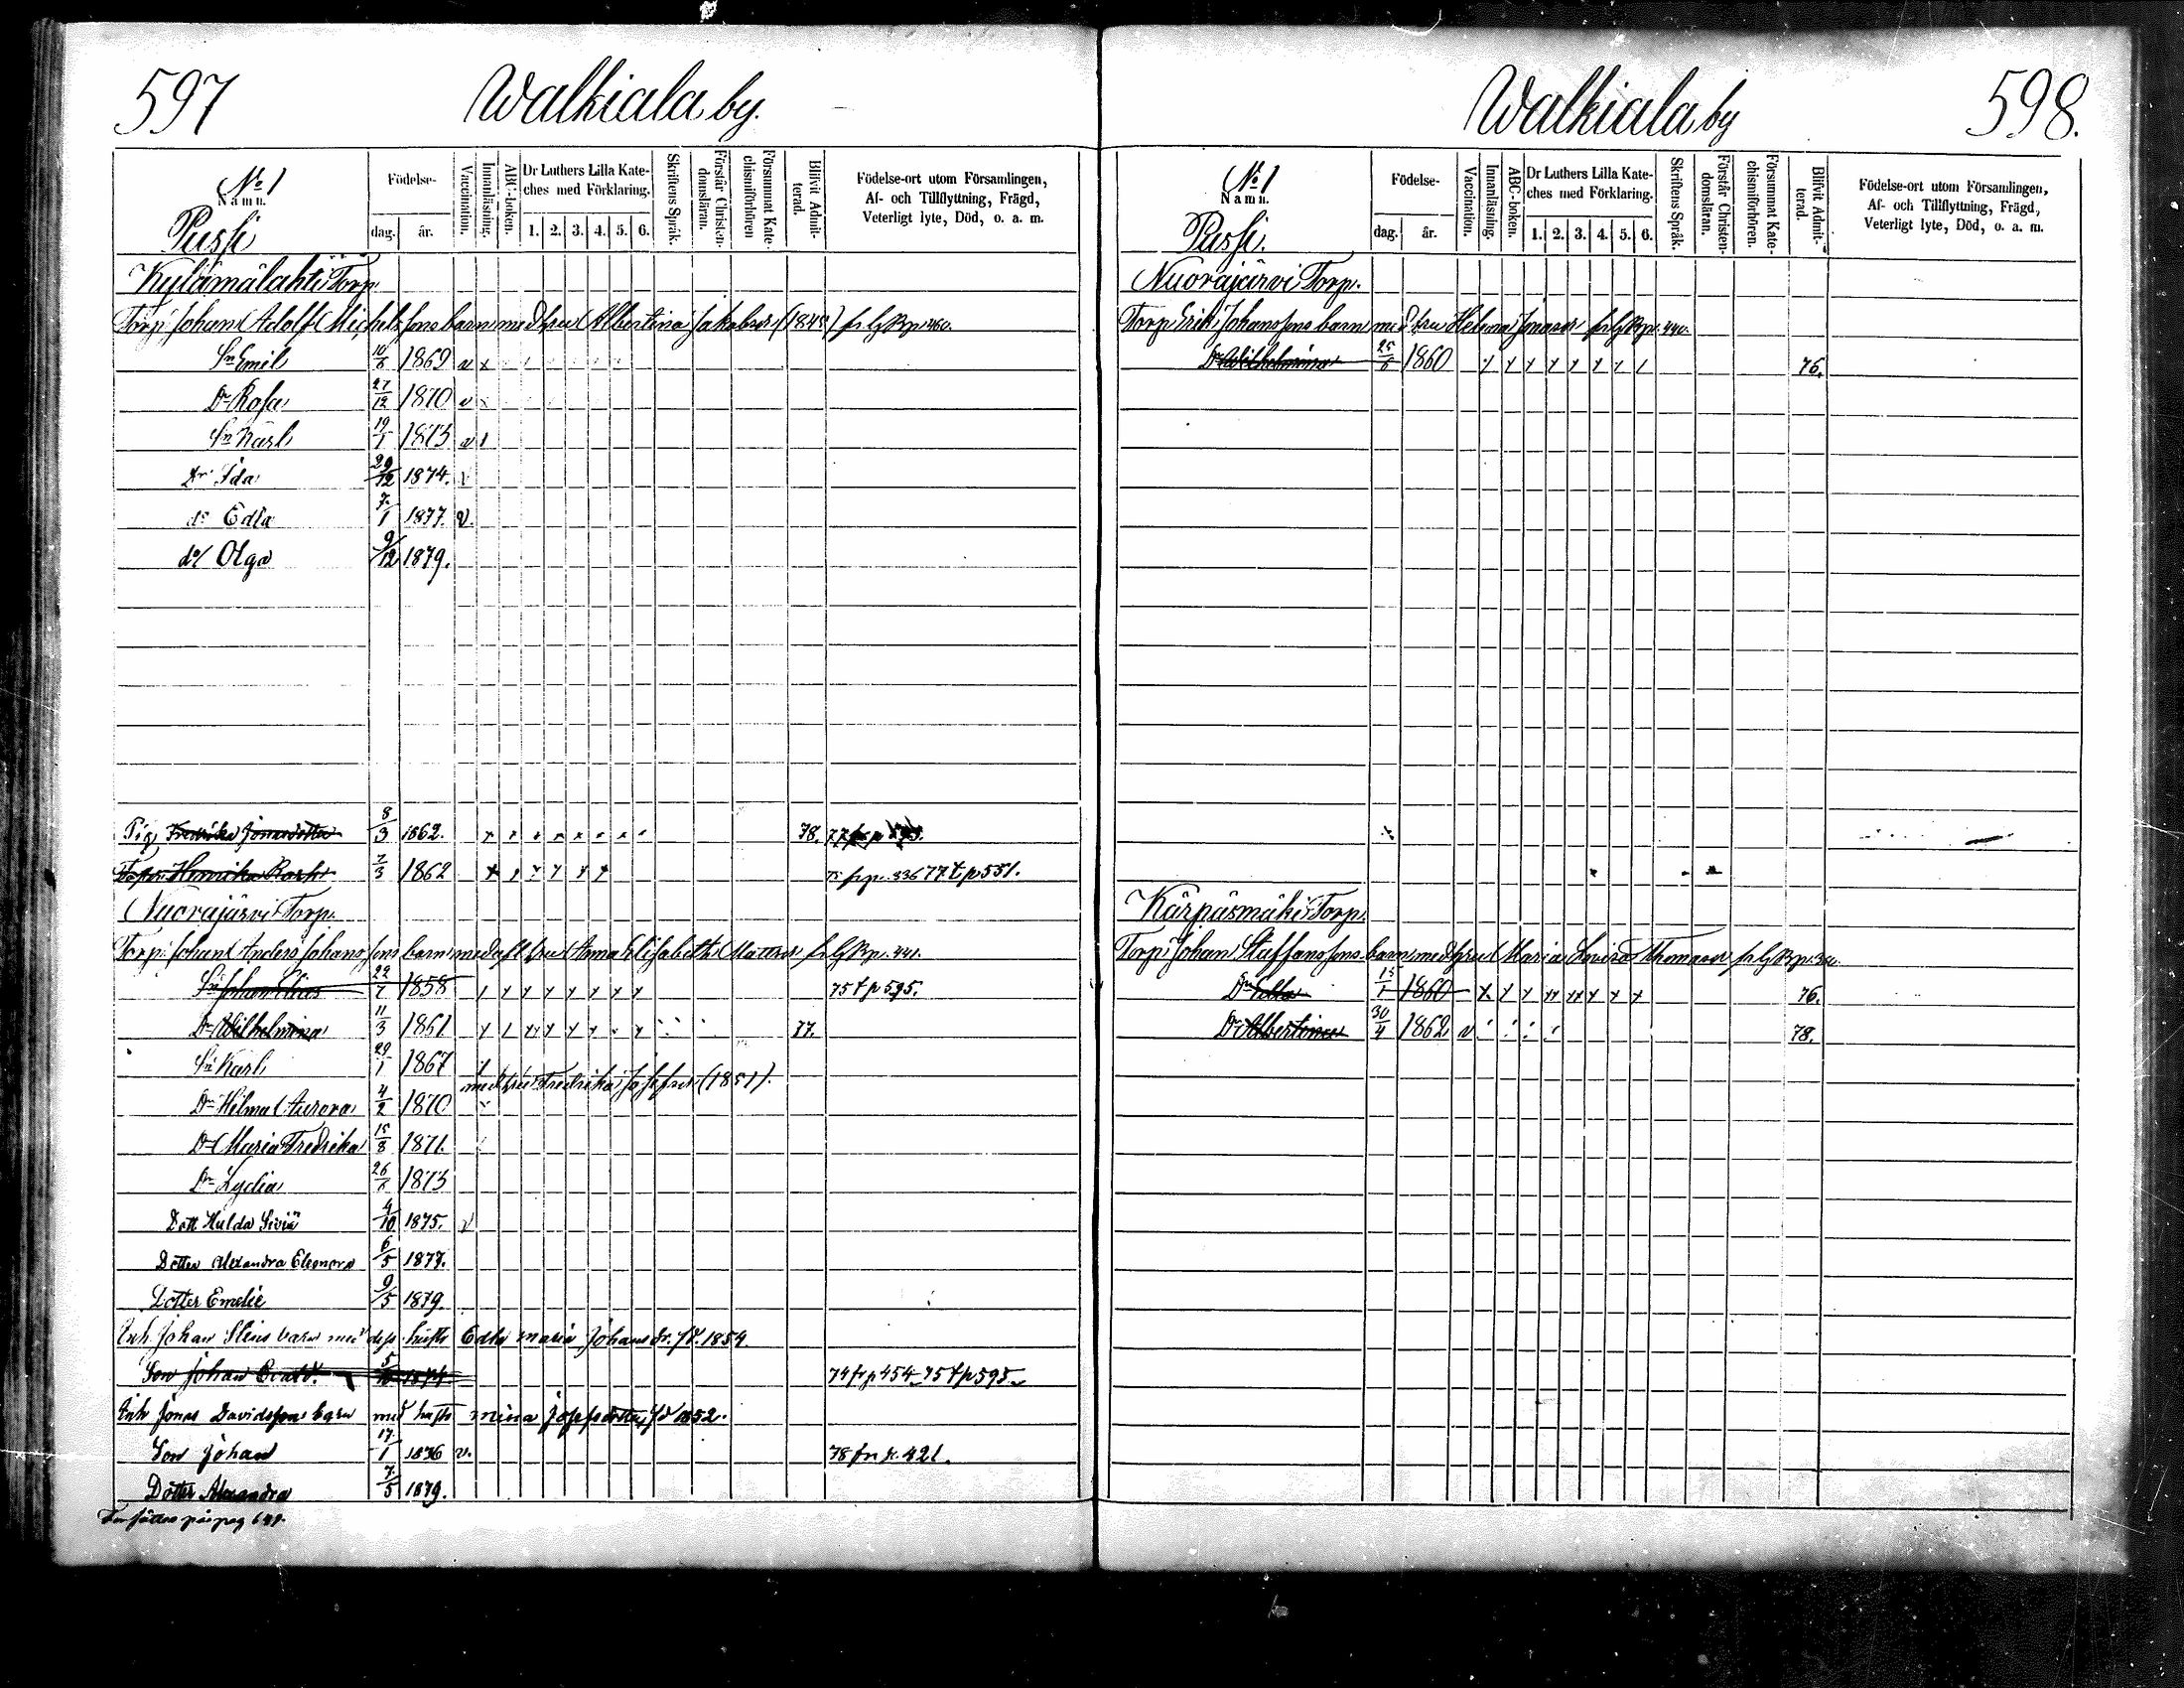 597
Walkiala by.
No 1
Namn.
Pussi
Födelse-
dag. år.
Vaccination.
Innanläsning.
ABC-boken.
Dr Luthers Lilla Kate-
ches med Förklaring.
1. 2. 3. 4. 5. 6.
Skriftens Språk.
Förstår Christen-
domsläran.
Försummat Kate-
chismiförhören
Blifvit Admit-
terad.
Födelse-ort utom Församlingen,
Af- och Tillflyttning, Frägd,
Veterligt lyte, Död, o. a. m.
Torp.
Torp. Johan Adolf Michelssons barn med hru Albertina Jakobsdr
Sn Emil 1869 v x
Dr Rosa 27/12 1870 v
Sn Karl 19/1 1873 v 1
Dr Ida 29/12 1874. v
do Edla 7/1 1877. v.
do/ Olga 9/12 1879.
Pig. Fredrika Jonasdotter 8/3 1862. x x x x x x x x 78.
Henrika 7/3 1862 336 77 t p 551.
Nuorajärvi Torp.
Torp. Johan Anders Johanssons barn med afl. hru Anna Elisabeth Mattsdr fr LgBp. 441.
Sn Johan Elias 22/7 1858 75 t p 595.
Dr Wilhelmina 11/3 1861 77.
Sn Karl 29/1 1867
med hru Fredrika Josefsdr (1851).
Dr Hilma Aurora 4/2 1870
Dr Maria Fredrika 15/8 1871.
Dr Lydia 1873
Dott Hulda Siviä 4/10 1875. v
Dotter Alexandra Eleonora 6/5 1877.
Dotter Emelie 9/5 1879.
Inh. Johan Elias barn med dess hustr Edla Maria Johansdr. fd. 1854.
Son Johan 74 fr p 454 75 t p 595
Inh Jonas Davidssons barn med hustr Mina Josefsdotter fd 1852.
Son Johan 17/1 1876 v. 78 fr p. 421.
Dotter Alexandra 7/5 1879.
Fortsättes på pag 649.
Walkiala by
598.
No 1
Namn.
Pussi.
Födelse-
dag. år.
Vaccination.
Innanläsning.
ABC-boken.
Dr Luthers Lilla Kate-
ches med Förklaring.
1. 2. 3. 4. 5. 6.
Skriftens Språk.
Förstår Christen-
domsläran.
Försummat Kate-
chismiförhören.
Blifvit Admit-
terad.
Födelse-ort utom Församlingen,
Af- och Tillflyttning, Frägd,
Veterligt lyte, Död, o. a. m.
Nuorajärvi Torp.
Torp. Erik Johanssons barn med hru Helena Jonasdr fr LgBp. 440.
Dr Wilhelmina 1860 76.
Kärpäsmäki Torp.
Torp. Johan Staffanssons barn med hru Maria Lovisa Thomasdr
Dr 15/1 1860 76.
Dr Albertina 30/4 1862 v 78.